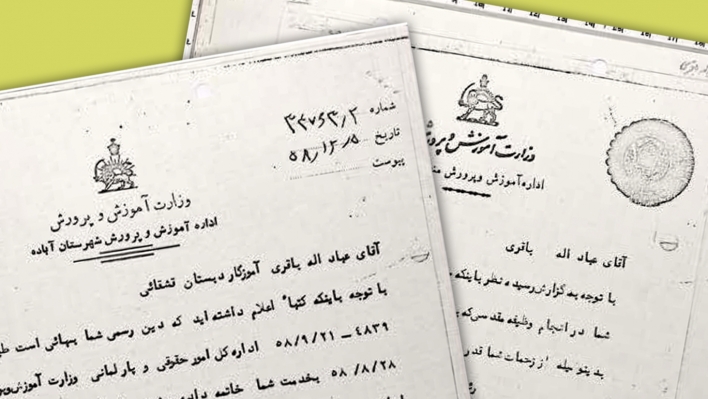 شماره ۳۴۷۶۳٫۲
تاریخ ۵۸٫۱۲٫۵
پیوست
وزارت آموزش و پرورش
اداره آموزش و پرورش شهرستان آباده
آقای عباد اله باقری آموزگار دبستان قشقائی
با توجه باینکه کتبا" اعلام داشته اید که دین رسمی شما بهائی است
۴۸۳۹ – ۵۸/۹/۲۱ اداره کل امور حقوقی و پارلمانی وزارت آموزش
۵۸/۸/۲۸ بخدمت شما خاتمه
وزارت آموزش و
اداره آموزش و پرورش
آقای عباد اله باقری
با توجه به گزارش رسیده نظر باینکه
شما در انجام وظیفه مقدسی که
بدینوسیله از زحمات شما قدر